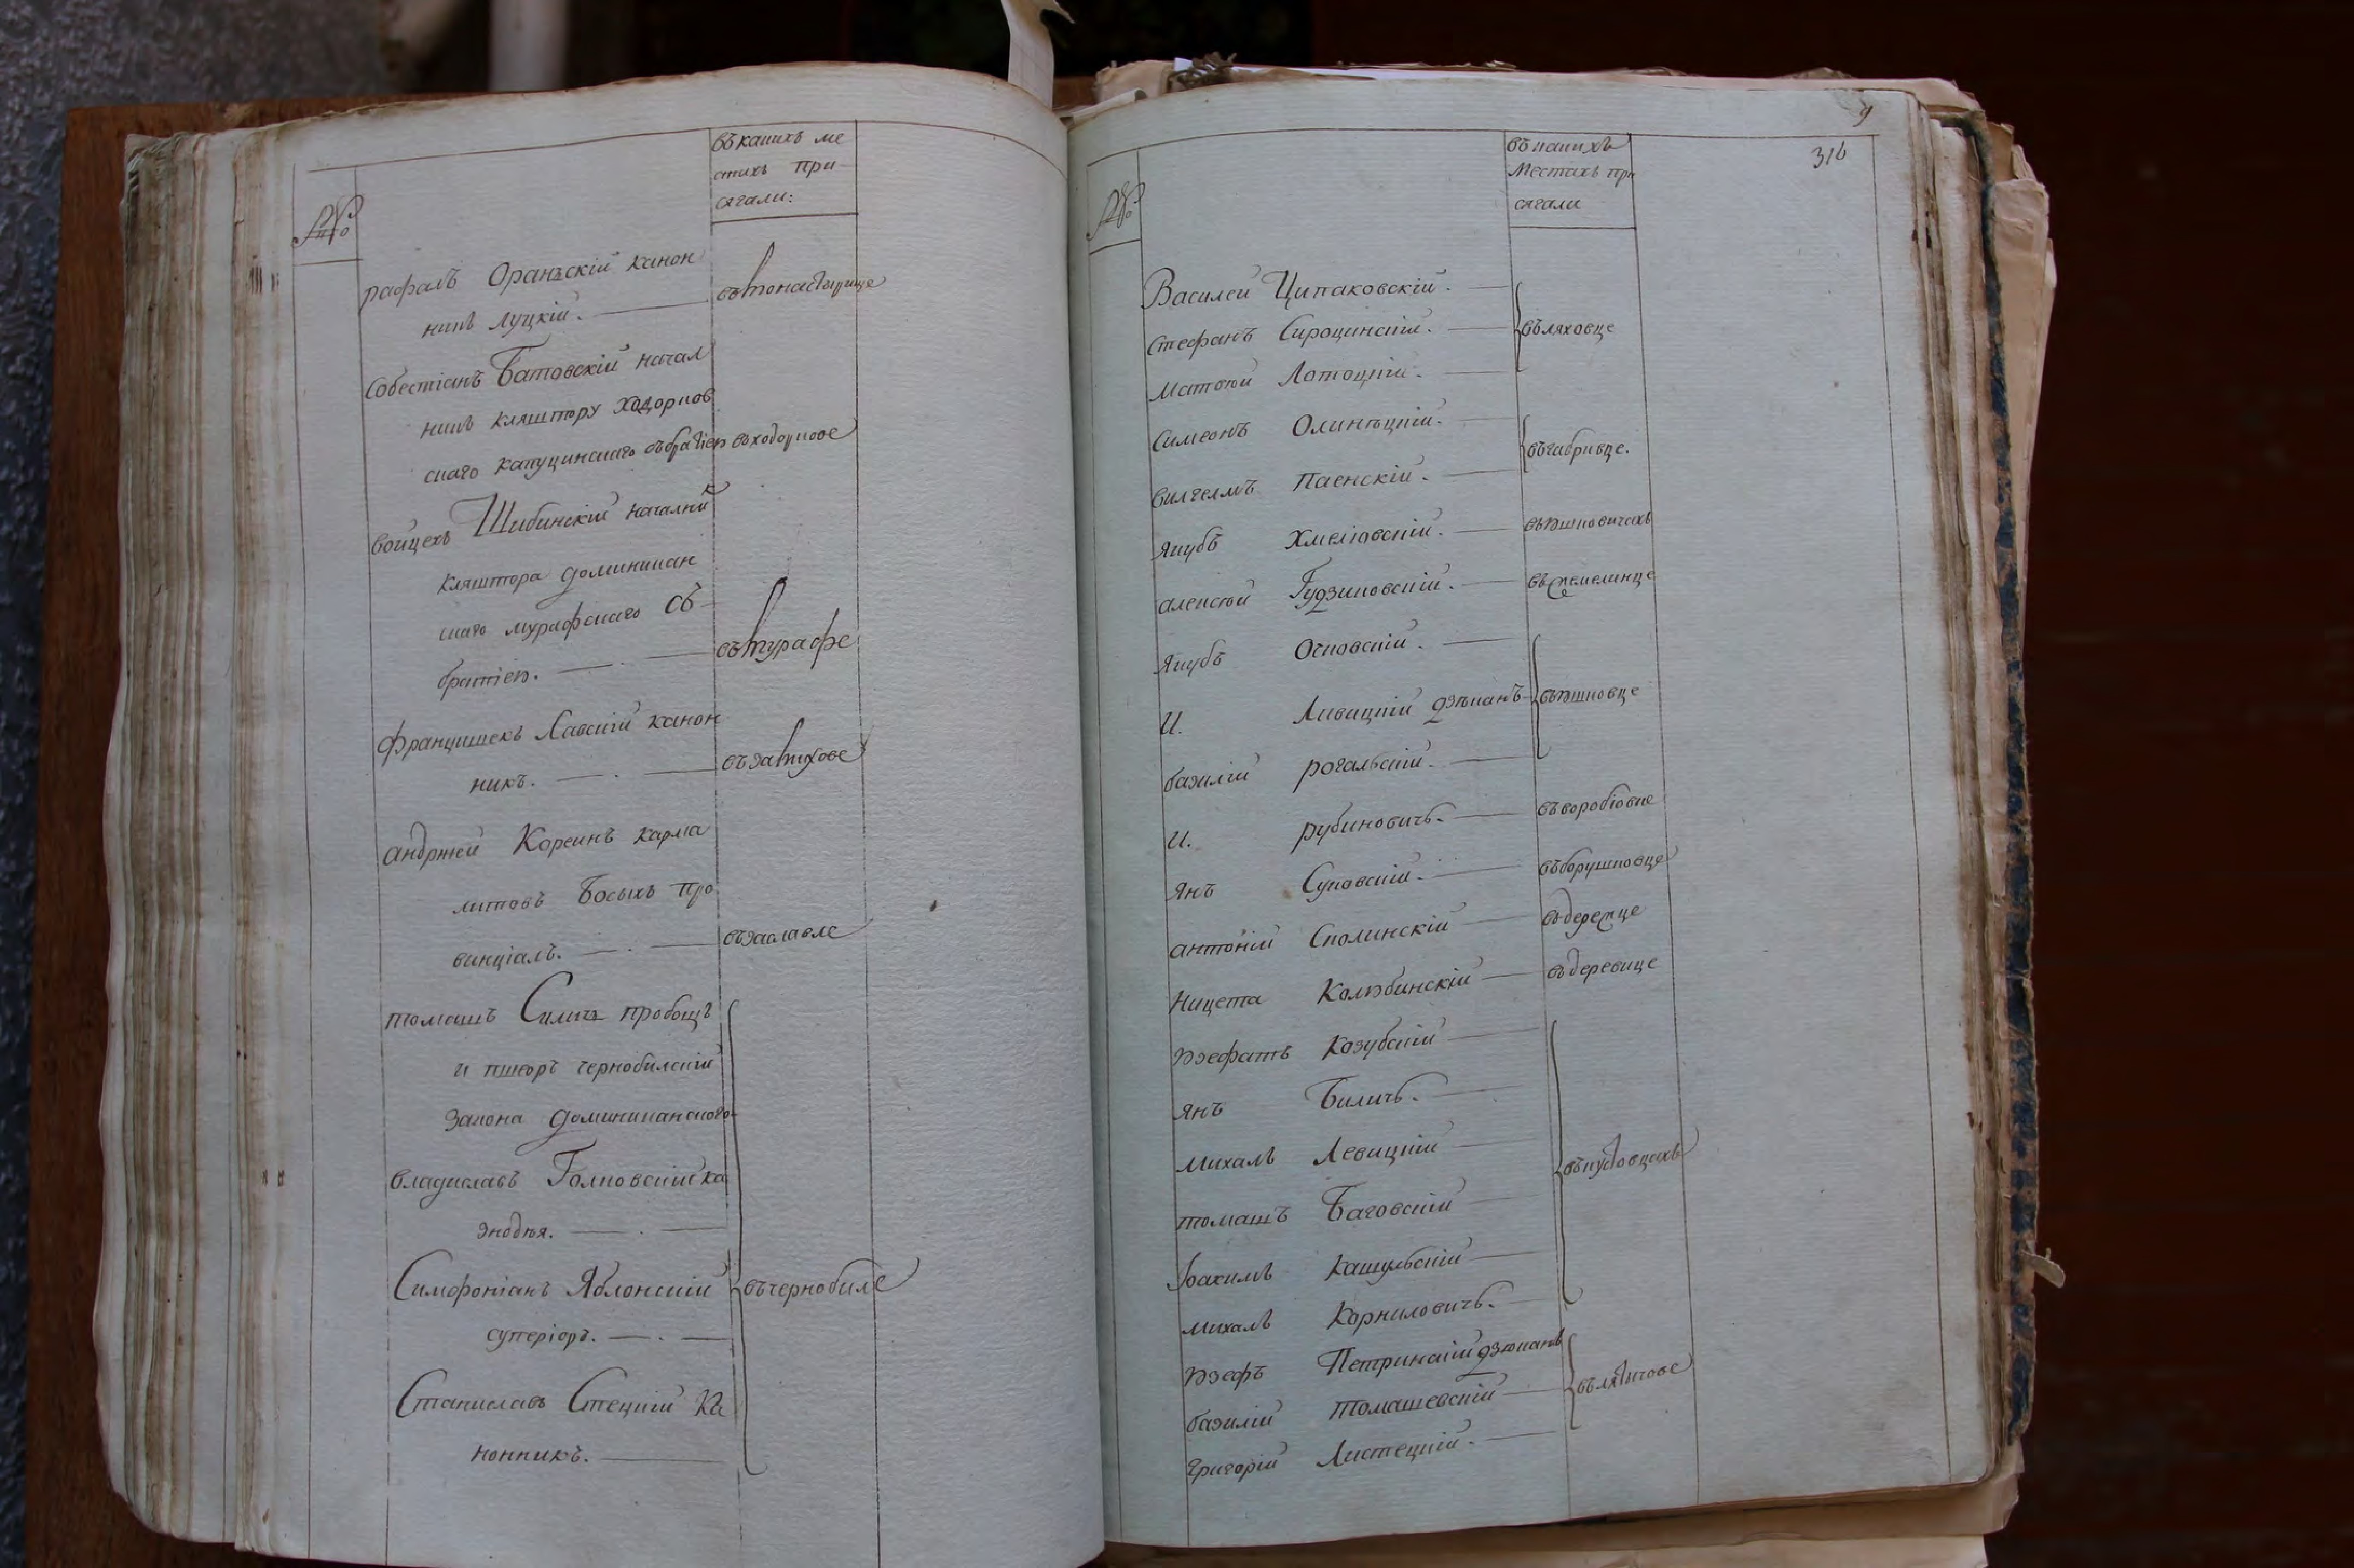 №
въ какихъ ме
стахъ при-
сягали:
рафалъ Оранскій канон
никъ луцкій. въ монастырище
Собестіанъ Батовскій начал
никъ кляштору ходорков
скаго капуцинскаго съ братіею въ ходоркове
войцехъ Шибинскій началник
кляштора доминикан
скаго мурафскаго съ-
братіею. въ мурафе
францишекъ Лавскій канон
никъ.
андржей Кореинъ карма
литовъ босыхъ про
винціалъ. въ заславле
томашъ Силичъ пробощъ
и пшеоръ чернобилскій
закона доминиканского-
владиславъ Голковскій ка
знодѣя.
Симфоріанъ Яблонскій въ чернобиле
суперіоръ.
Станиславъ Стецкій ка
нонникъ.
9
316
№
въ какихъ
местахъ при
сягали
Василей Ципаковскій.
стефанъ Сироцинскій. въ ляховце
матѳей Лотоцкій.
симеонъ Олинѣцкій.
вилгелмъ Паенскій. въ габривце.
якубъ Хмелювскій.
алексѣй Гудзиковскій.
якубъ Очковскій.
И. Ливицкій дзѣканъ
базилій рогальскій.
И. рубиновичъ. въ воробіовке
янъ Суковскій. въ борушковце
антоній Сполинскій
Никета Колѣбинскій въ деревице
юзефатъ Козубскій
янъ Биличъ.
михалъ Левицкій въ пустовцахъ
томашъ Баговскій
Іоахимъ Кашульскій
михалъ Корниловичъ.
юзефъ Петринскій дзѣканъ
базилій томашевскій въ лятичове
григорій Листецкій.